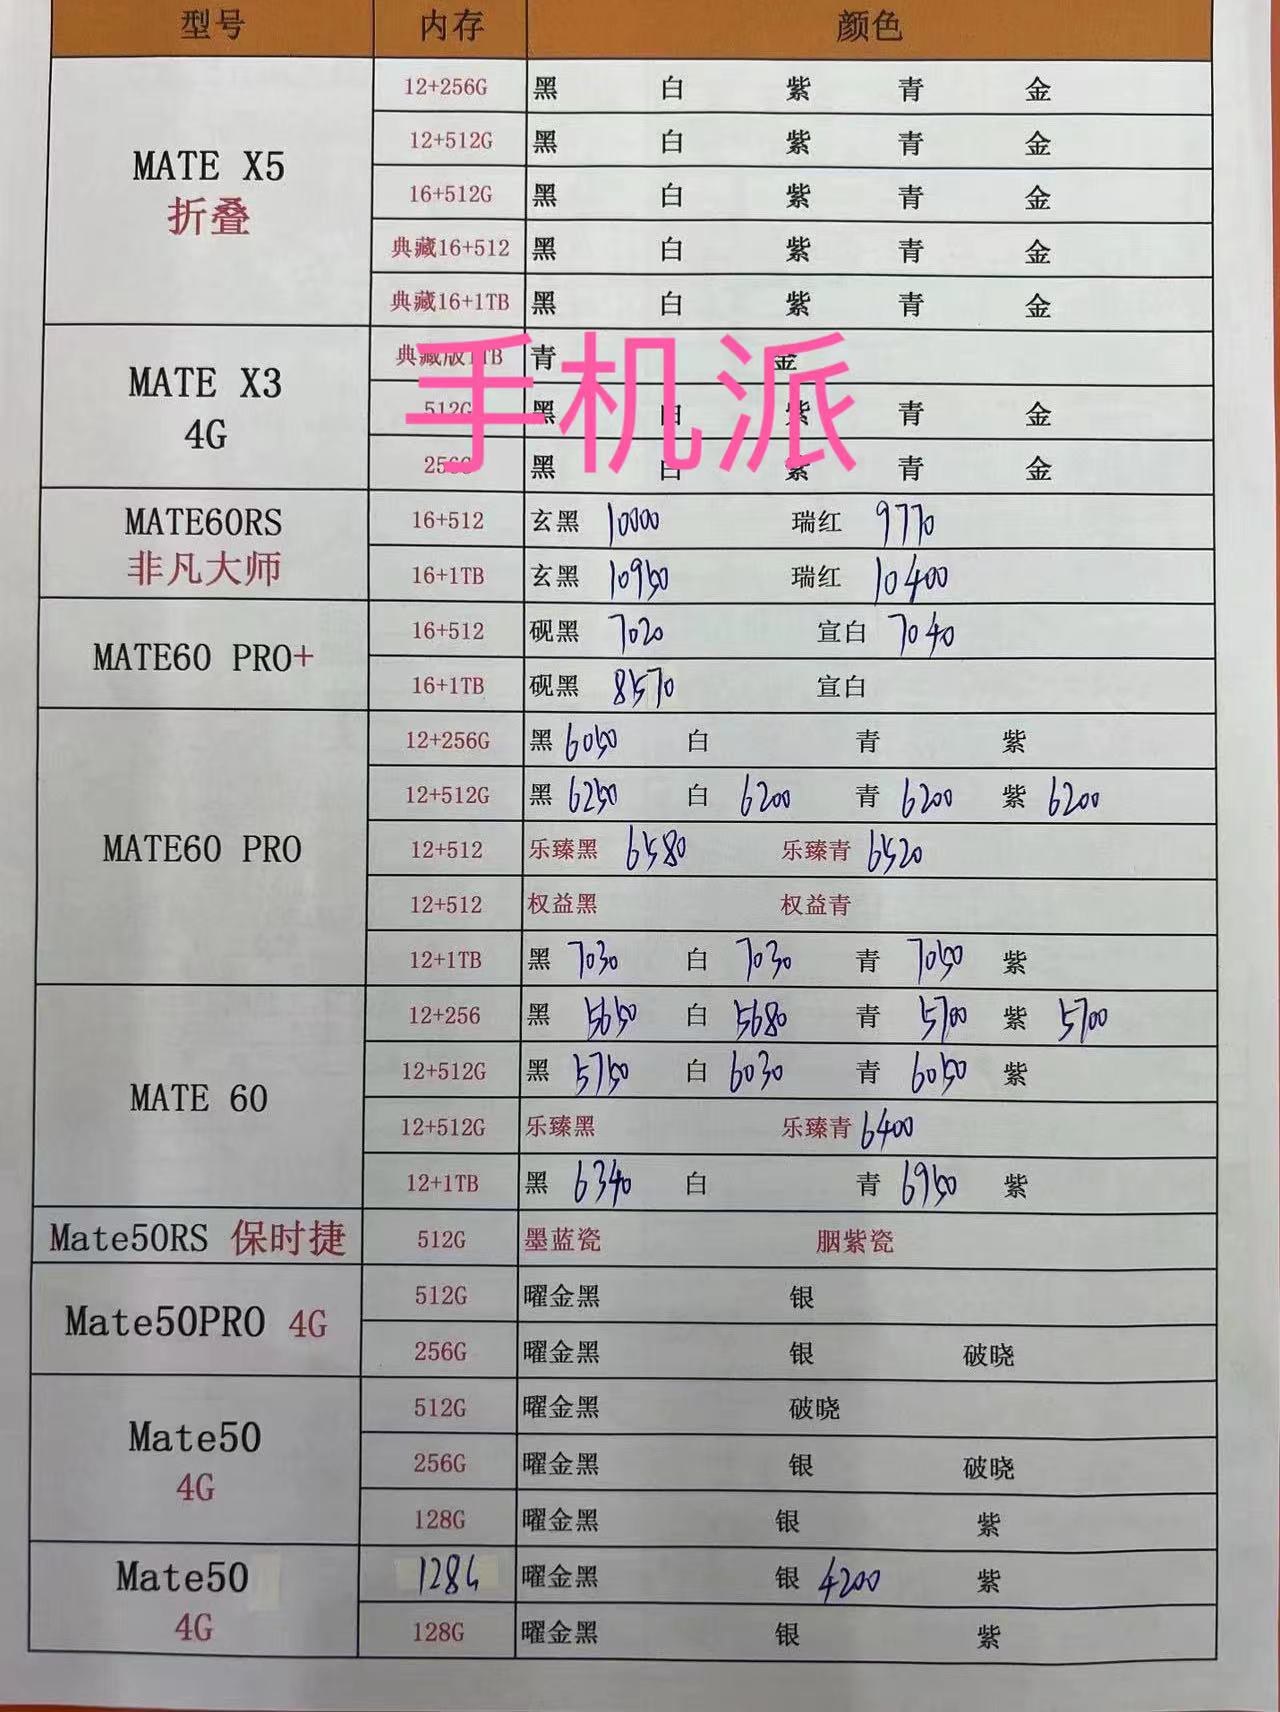 型号 内存 颜色
MATE X5
折叠
12+256G 黑 白 紫 青 金
12+512G 黑 白 紫 青 金
16+512G 黑 白 紫 青 金
典藏16+512 黑 白 紫 青 金
典藏16+1TB 黑 白 紫 青 金
手机派
MATE X3
4G
典藏版1TB 青 金
512G 黑 白 紫 青 金
256G 黑 白 紫 青 金
MATE60RS
非凡大师
16+512 玄黑 10000 瑞红 9770
16+1TB 玄黑 10950 瑞红 10400
MATE60 PRO+
16+512 砚黑 7020 宣白 7040
16+1TB 砚黑 8570 宣白
MATE60 PRO
12+256G 黑 6050 白 青 紫
12+512G 黑 6250 白 6200 青 6200 紫 6200
12+512 乐臻黑 6580 乐臻青 6520
12+512 权益黑 权益青
12+1TB 黑 7030 白 7030 青 7050 紫
MATE 60
12+256 黑 5650 白 5680 青 5700 紫 5700
12+512G 黑 5750 白 6030 青 6050 紫
12+512G 乐臻黑 乐臻青 6400
12+1TB 黑 6340 白 青 6950 紫
Mate50RS 保时捷 512G 墨蓝瓷 胭紫瓷
Mate50PRO 4G
512G 曜金黑 银
256G 曜金黑 银 破晓
Mate50
4G
512G 曜金黑 破晓
256G 曜金黑 银 破晓
128G 曜金黑 银 紫
Mate50
4G
128G 曜金黑 银 4200 紫
128G 曜金黑 银 紫